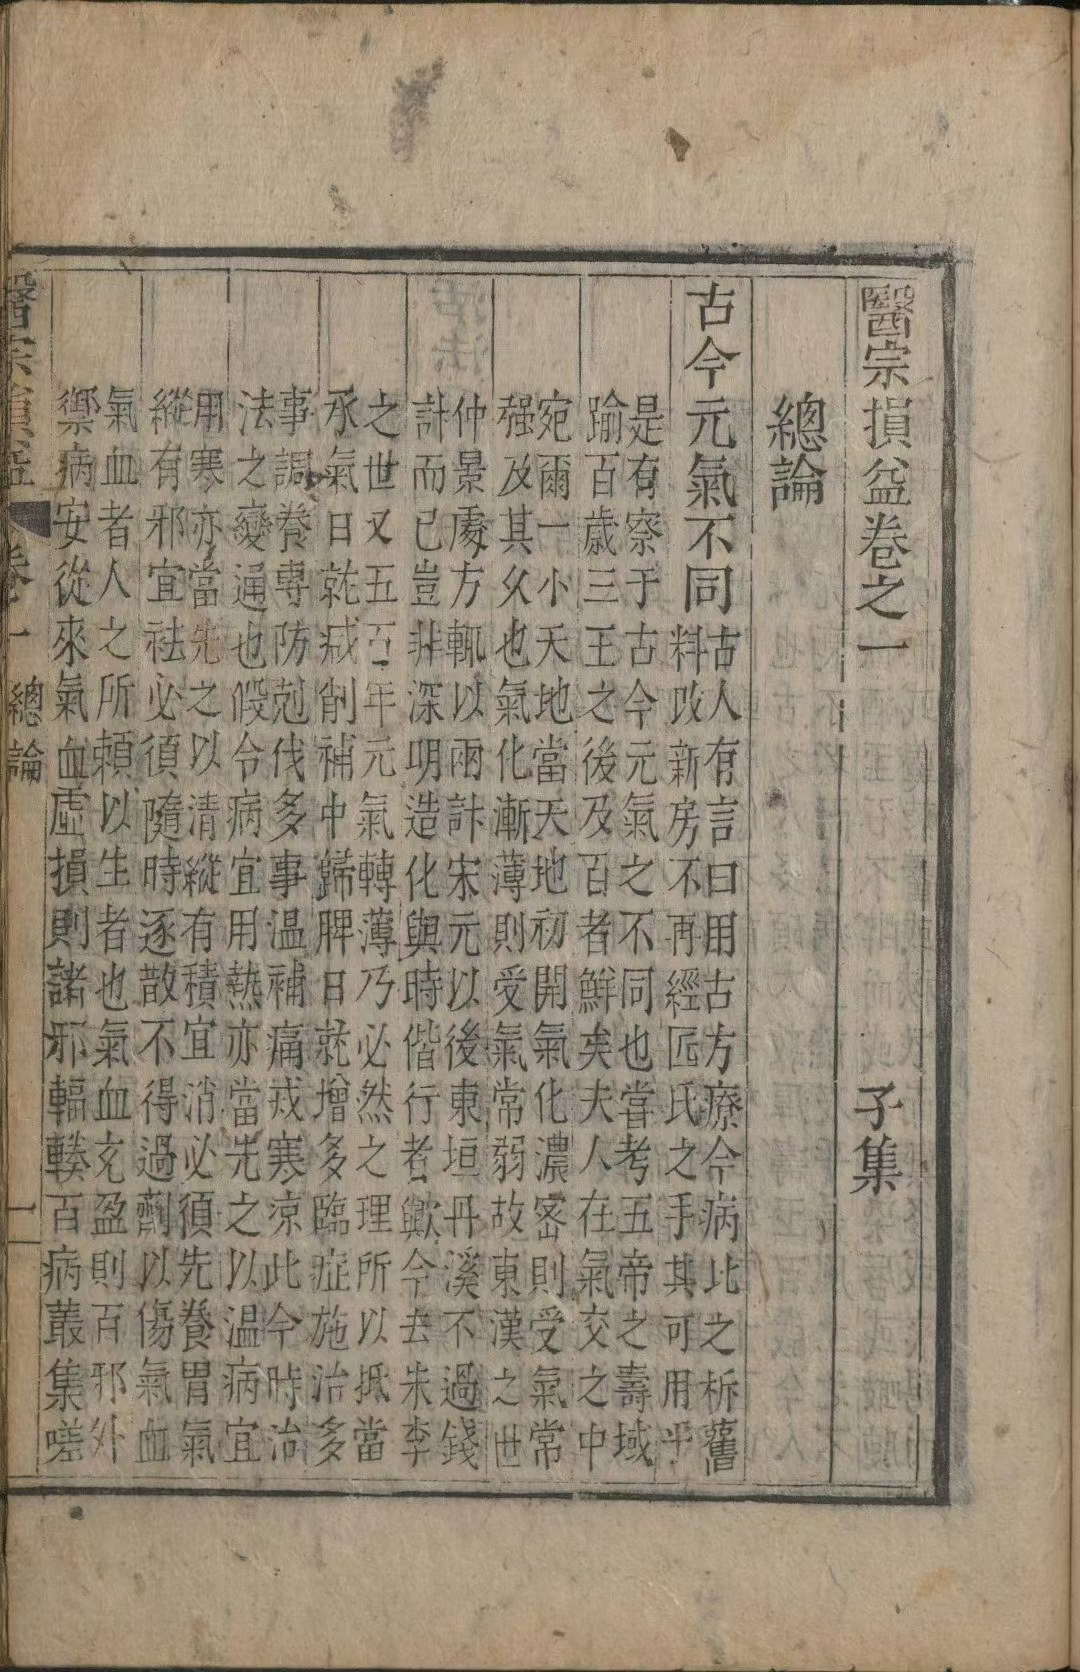 醫宗損益卷之一　子集
總論
古今元氣不同古人有言曰用古方療今病比之柝舊
料改新房不再經匠氏之手其可用乎
是有察于古今元氣之不同也嘗考五帝之壽域
踰百歲三王之後及百者鮮矣夫人在氣交之中
宛爾一小天地當天地初開氣化濃密則受氣常
强及其久也氣化漸薄則受氣常弱故東漢之世
仲景處方輒以兩計宋元以後東垣丹溪不過錢
計而已豈非深明造化與時偕行者歟今去朱李
之世又五百年元氣轉薄乃必然之理所以抵當
承氣日就减削補中歸脾日就增多臨症施治多
事調養專防剋伐多事温補痛戒寒涼此今時治
法之變通也假令病宜用熱亦當先之以温病宜
用寒亦當先之以清縱有積宜消必須先養胃氣
縱有邪宜祛必須隨時逐散不得過劑以傷氣血
氣血者人之所賴以生者也氣血充盈則百邪外
禦病安從來氣血虛損則諸邪輻輳百病叢集嗟
醫宗損益　卷一　總論　一